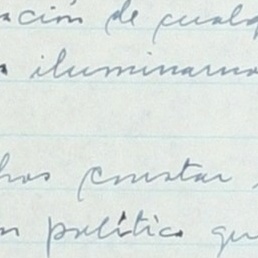 ación de cualq
iluminarno
hos constar
n política qu